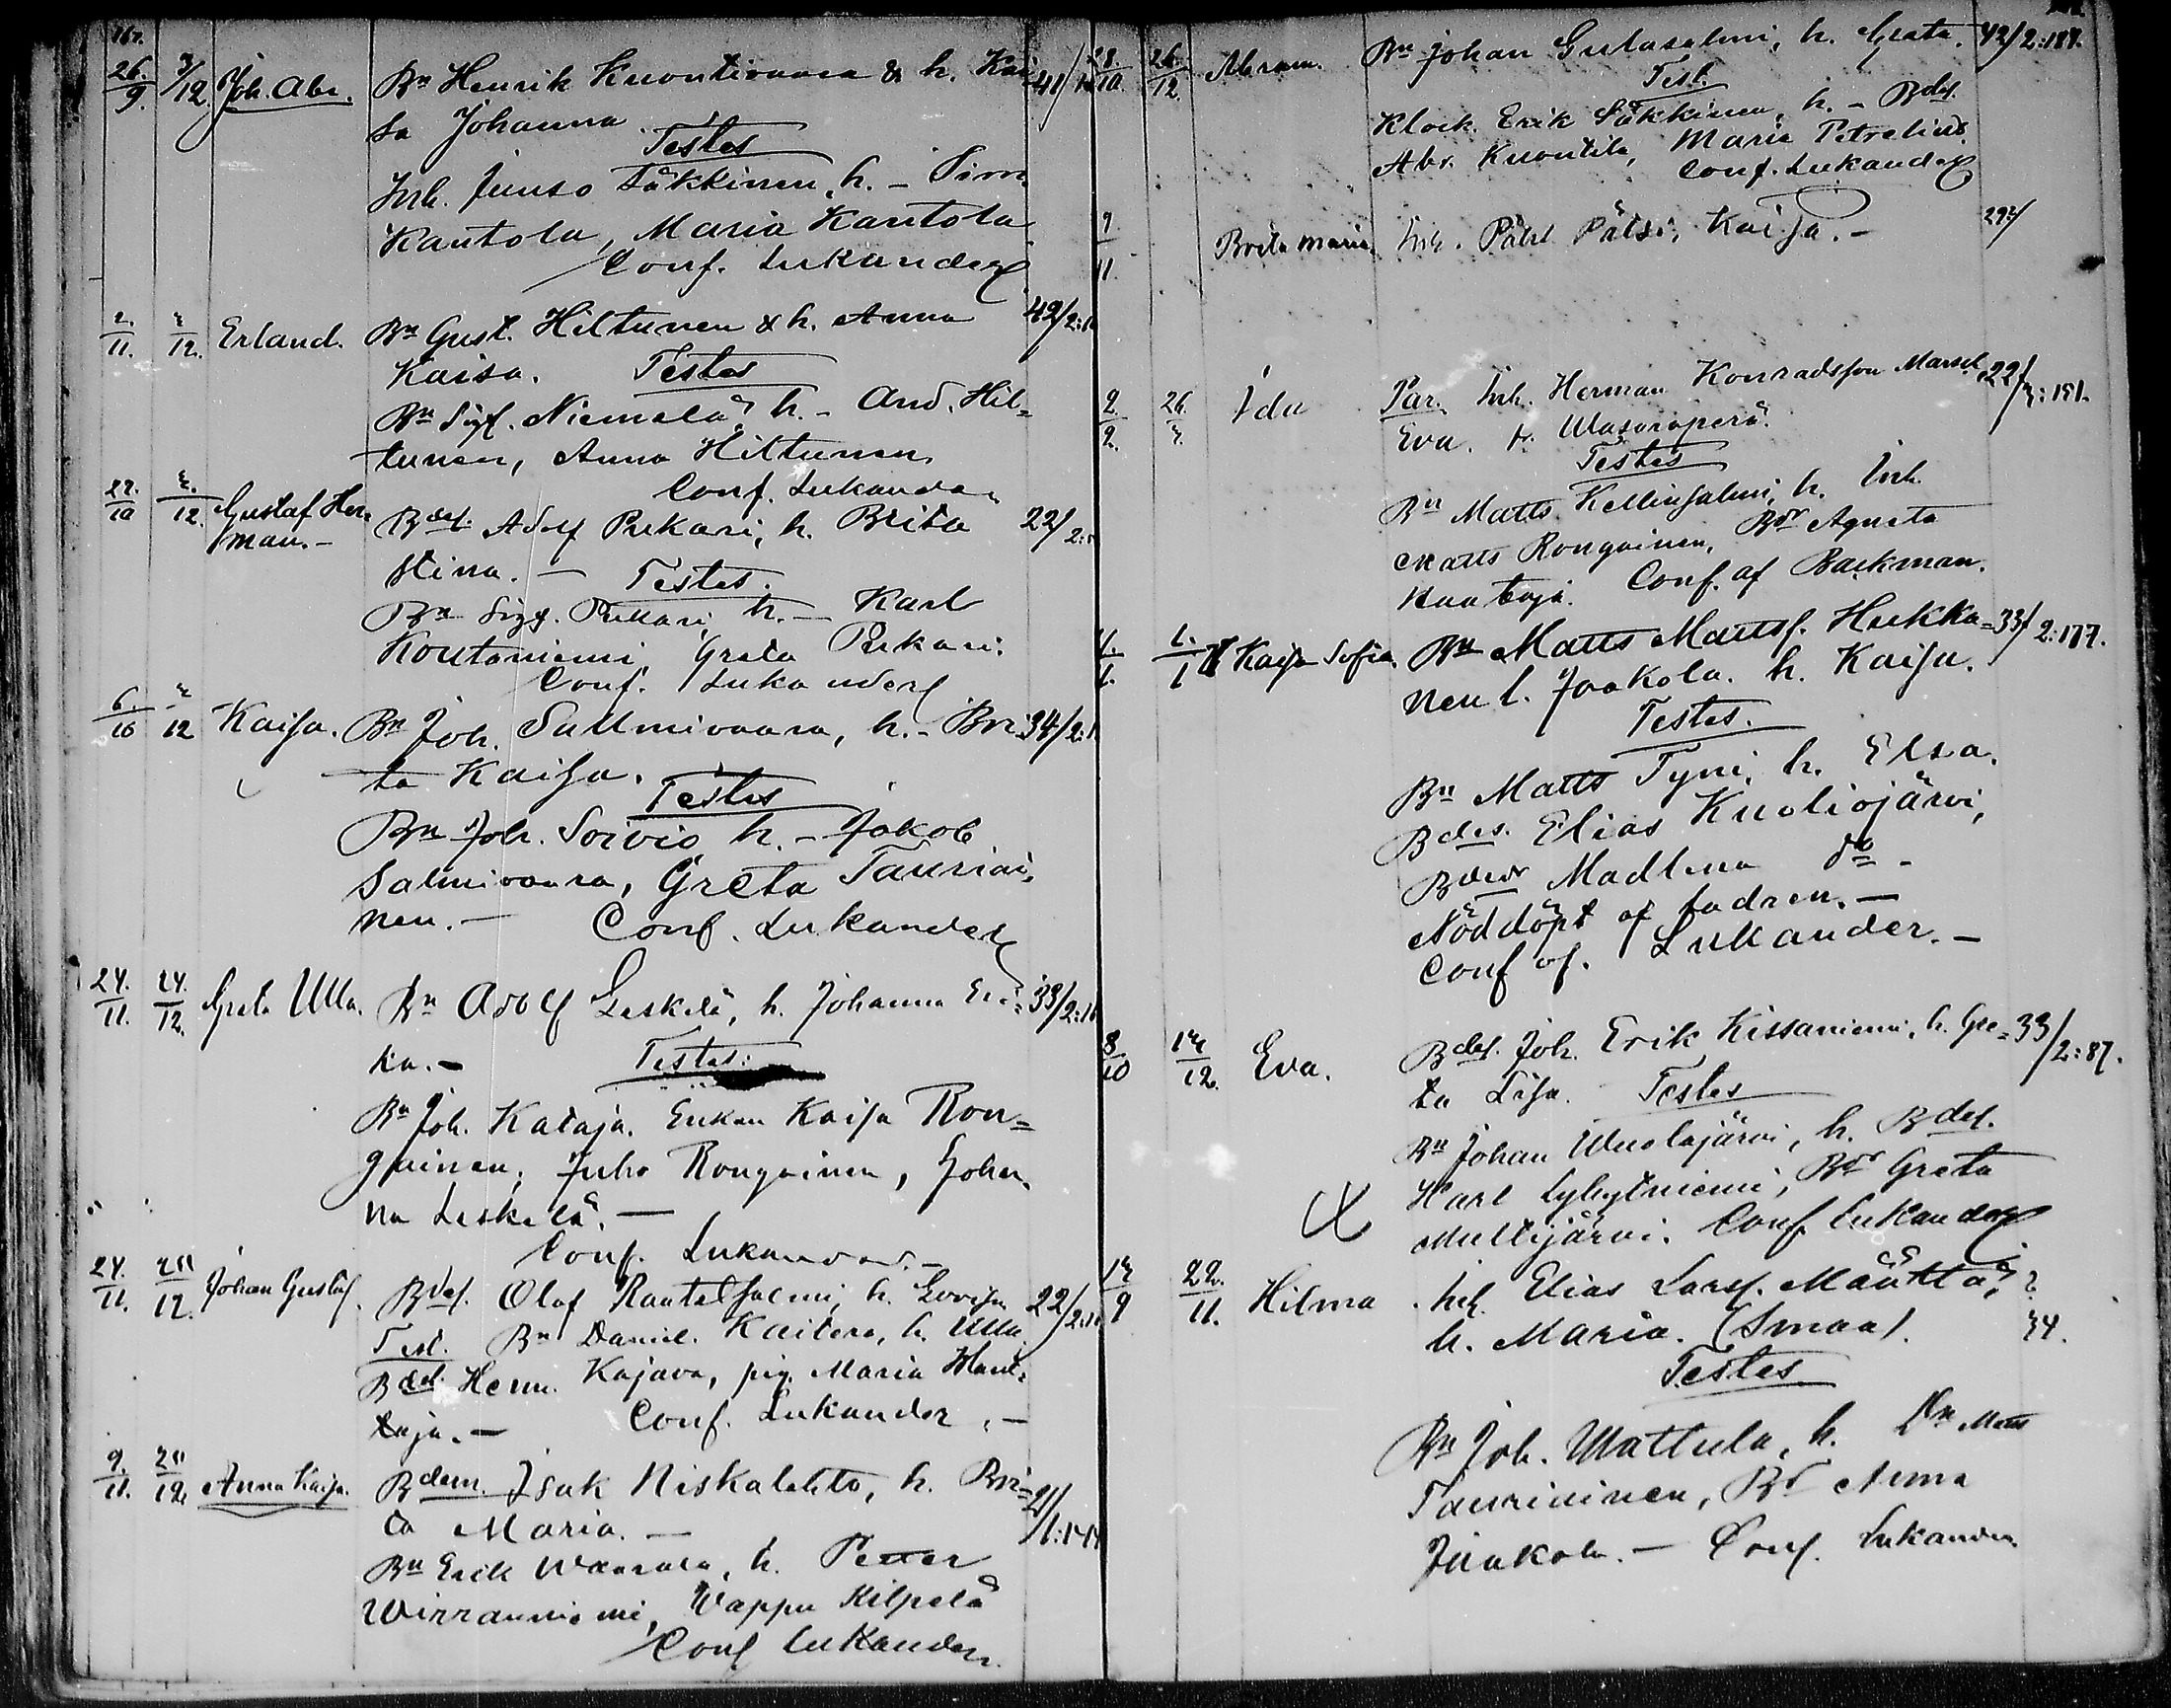 167.
26./9. 3/12. Joh. Abr. Bn Henrik Kuontivaara & h. Kai 41/
sa Johanna
Testes
Inh. Juuso Säkkinen, h. - Sim.
Kantola, Maria Kantola
Conf. Lukander
2./11. 2/12. Erland. Bn Gust. Hiltunen & h. Anna 42/2:1
Kaisa. Testes
Bn Sigf. Niemelä, h. - And. Hil=
tunen, Anna Hiltunen
Conf. Lukander
27./10 2./12. Gustaf Her= Bdes. Adolf Pukari, h. Brita 22/2:
man. -
Stina. - Testes.
Bn Sigf. Pukari, h. - Karl
Koutaniemi, Greta Pukari.
Conf. Lukander
6./10 2/12 Kaisa. Bn Joh. Sallmivaara, h. - Bri= 34/2:1
ta Kaisa.
Testes
Bn Joh. Soivio h. - Jakob
Salmivaara, Greta Tauriai=
nen. - Conf. Lukander
24./11. 24./12. Greta Ulla. Bn Adolf Leskelä, h. Johanna Eri= 33/2:1
ka. - Testes:
Bn Joh. Kataja. Enkan Kaisa Ron=
gainen, Juho Rongainen, Johan=
na Leskelä. -
Conf. Lukander. -
24./11. /12. Johan Gustaf. Bdes. Olof Rautalsalmi, h. Lovisa 22/2:1
Test. Bn Daniel Kaitera, h. Ulla
Bdes. Herm. Kajava, pig. Maria Hant=
taja. - Conf. Lukander. -
9./11. /12. Anna Kaisa. Bdem. Isak Niskalehto, h. Bri= 21/1:14
ta Maria. -
Bn Erik Waarala, h. Petter
Wirranniemi, Wappu Kilpelä
Conf Lukander.
28/10. 26./12. Abram. Bn Johan Gutasalmi, h. Greta. 42/2:187.
Test.
Klock. Erik Säkkinen, h. - Bdes.
Abr. Kuontila, Maria Petrelius.
Conf. Lukander
9/11. Brita Maria. Inh. Påhl Pätsi, Kaisa. - 292/
2/2. 26./ Ida Par. Inh. Herman Konradsson Marsch 22/
Eva. Wasaraperä.
Testes
Bn Matts Kellinsalmi, h. Inh.
Matts Rongainen, Bdr Agneta
Haataja. Conf. af Backman.
4./1. 1./1 Kaisa Sofia. Bn Matts Mattsf. Hukka= 33/2:177.
nen l. Jaakola. h. Kaisa.
Testes.
Bn Matts Tyni, h. Elsa.
Bdes. Elias Kuoliojärvi,
Bdesdr Madlena do -
Nöddöpt af fadren. -
Conf af. Lukander. -
8/10 /12. Eva. Bdes. Joh. Erik Kissaniemi, h. Gre= 33/2:87.
ta Lisa. Testes
Bn Johan Wuolajärvi, h. Bdes.
Karl Lyhytniemi, Bdr Greta
Multijärvi. Conf Lukander
/9 22./11. Hilma. Inh. Elias Larsf. Määttä, ?
h. Maria. (Smaa). 34.
Testes
Bn Joh. Mattula, h. Bn Matts
Tauriainen, Bdr Anna
Jaakola. - Conf. Lukander